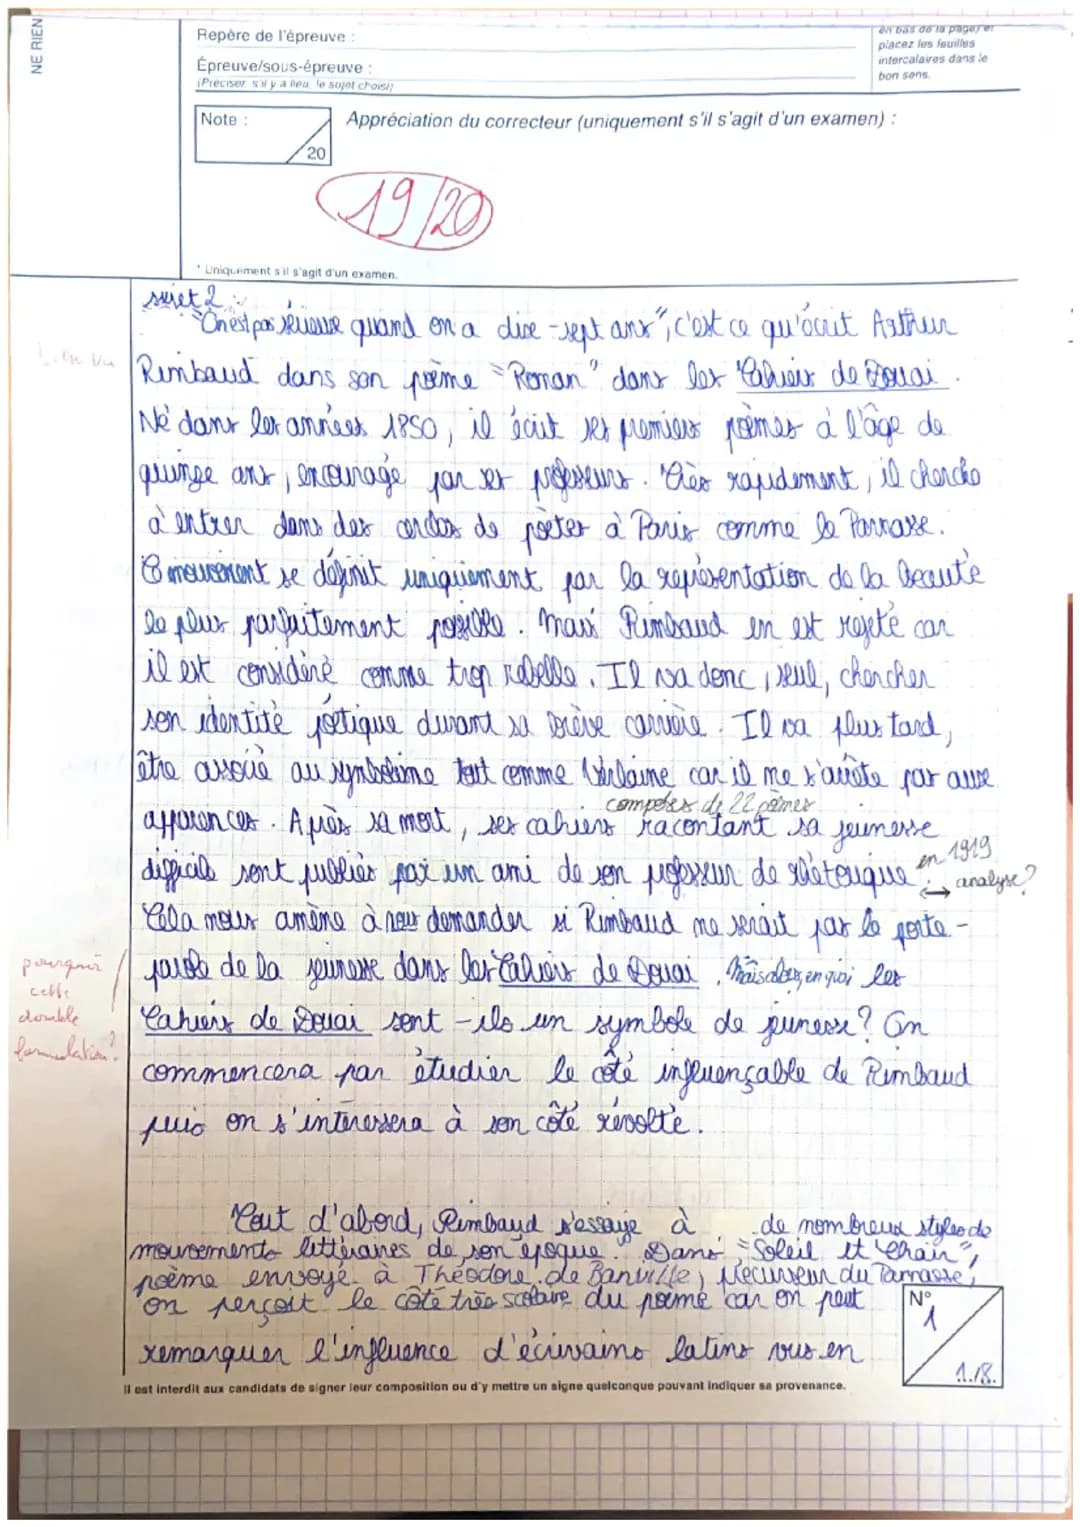 NE RIEN
Repère de l'épreuve :
Épreuve/sous-épreuve :
(Préciser, s'il y a lieu, le sujet choisi)
en bas de la page) et
placez les feuilles
intercalaires dans le
bon sens.
Note :
20
Appréciation du correcteur (uniquement s'il s'agit d'un examen) :
19/20
* Uniquement s'il s'agit d'un examen.
sujet 2 :
"On est pas sérieux quand on a dix-sept ans", c'est ce qu'écrit Arthur
Rimbaud dans son poème "Roman" dans les Cahiers de Douai.
Né dans les années 1850, il écrit ses premiers poèmes à l'âge de
quinze ans, encouragé par ses professeurs. Très rapidement, il cherche
à entrer dans des cercles de poètes à Paris comme le Parnasse.
Ce mouvement se définit uniquement par la représentation de la beauté
le plus parfaitement possible. Mais Rimbaud en est rejeté car
il est considéré comme trop rebelle. Il va donc, seul, chercher
son identité poétique durant sa brève carrière. Il va plus tard,
être associé au symbolisme tout comme Verlaine car il ne s'arrête pas aux
composés de 22 poèmes
apparences. Après sa mort, ses cahiers racontant sa jeunesse
en 1919
difficile sont publiés par un ami de son professeur de rhétorique.
→ analyse?
Cela nous amène à nous demander si Rimbaud ne serait pas le porte-
parole de la jeunesse dans les Cahiers de Douai. Mais alors, en quoi les
pourquoi
cette
double
formulation?
Cahiers de Douai sont-ils un symbole de jeunesse? On
commencera par étudier le côté influençable de Rimbaud
puis on s'intéressera à son côté révolté.
Tout d'abord, Rimbaud s'essaye à de nombreux styles de
mouvements littéraires de son époque. Dans "Soleil et Chair",
poème envoyé à Théodore de Banville, précurseur du Parnasse,
on perçoit le côté très scolaire du poème car on peut
remarquer l'influence d'écrivains latins vus en
N°
1
1./8.
Il est interdit aux candidats de signer leur composition ou d'y mettre un signe quelconque pouvant indiquer sa provenance.